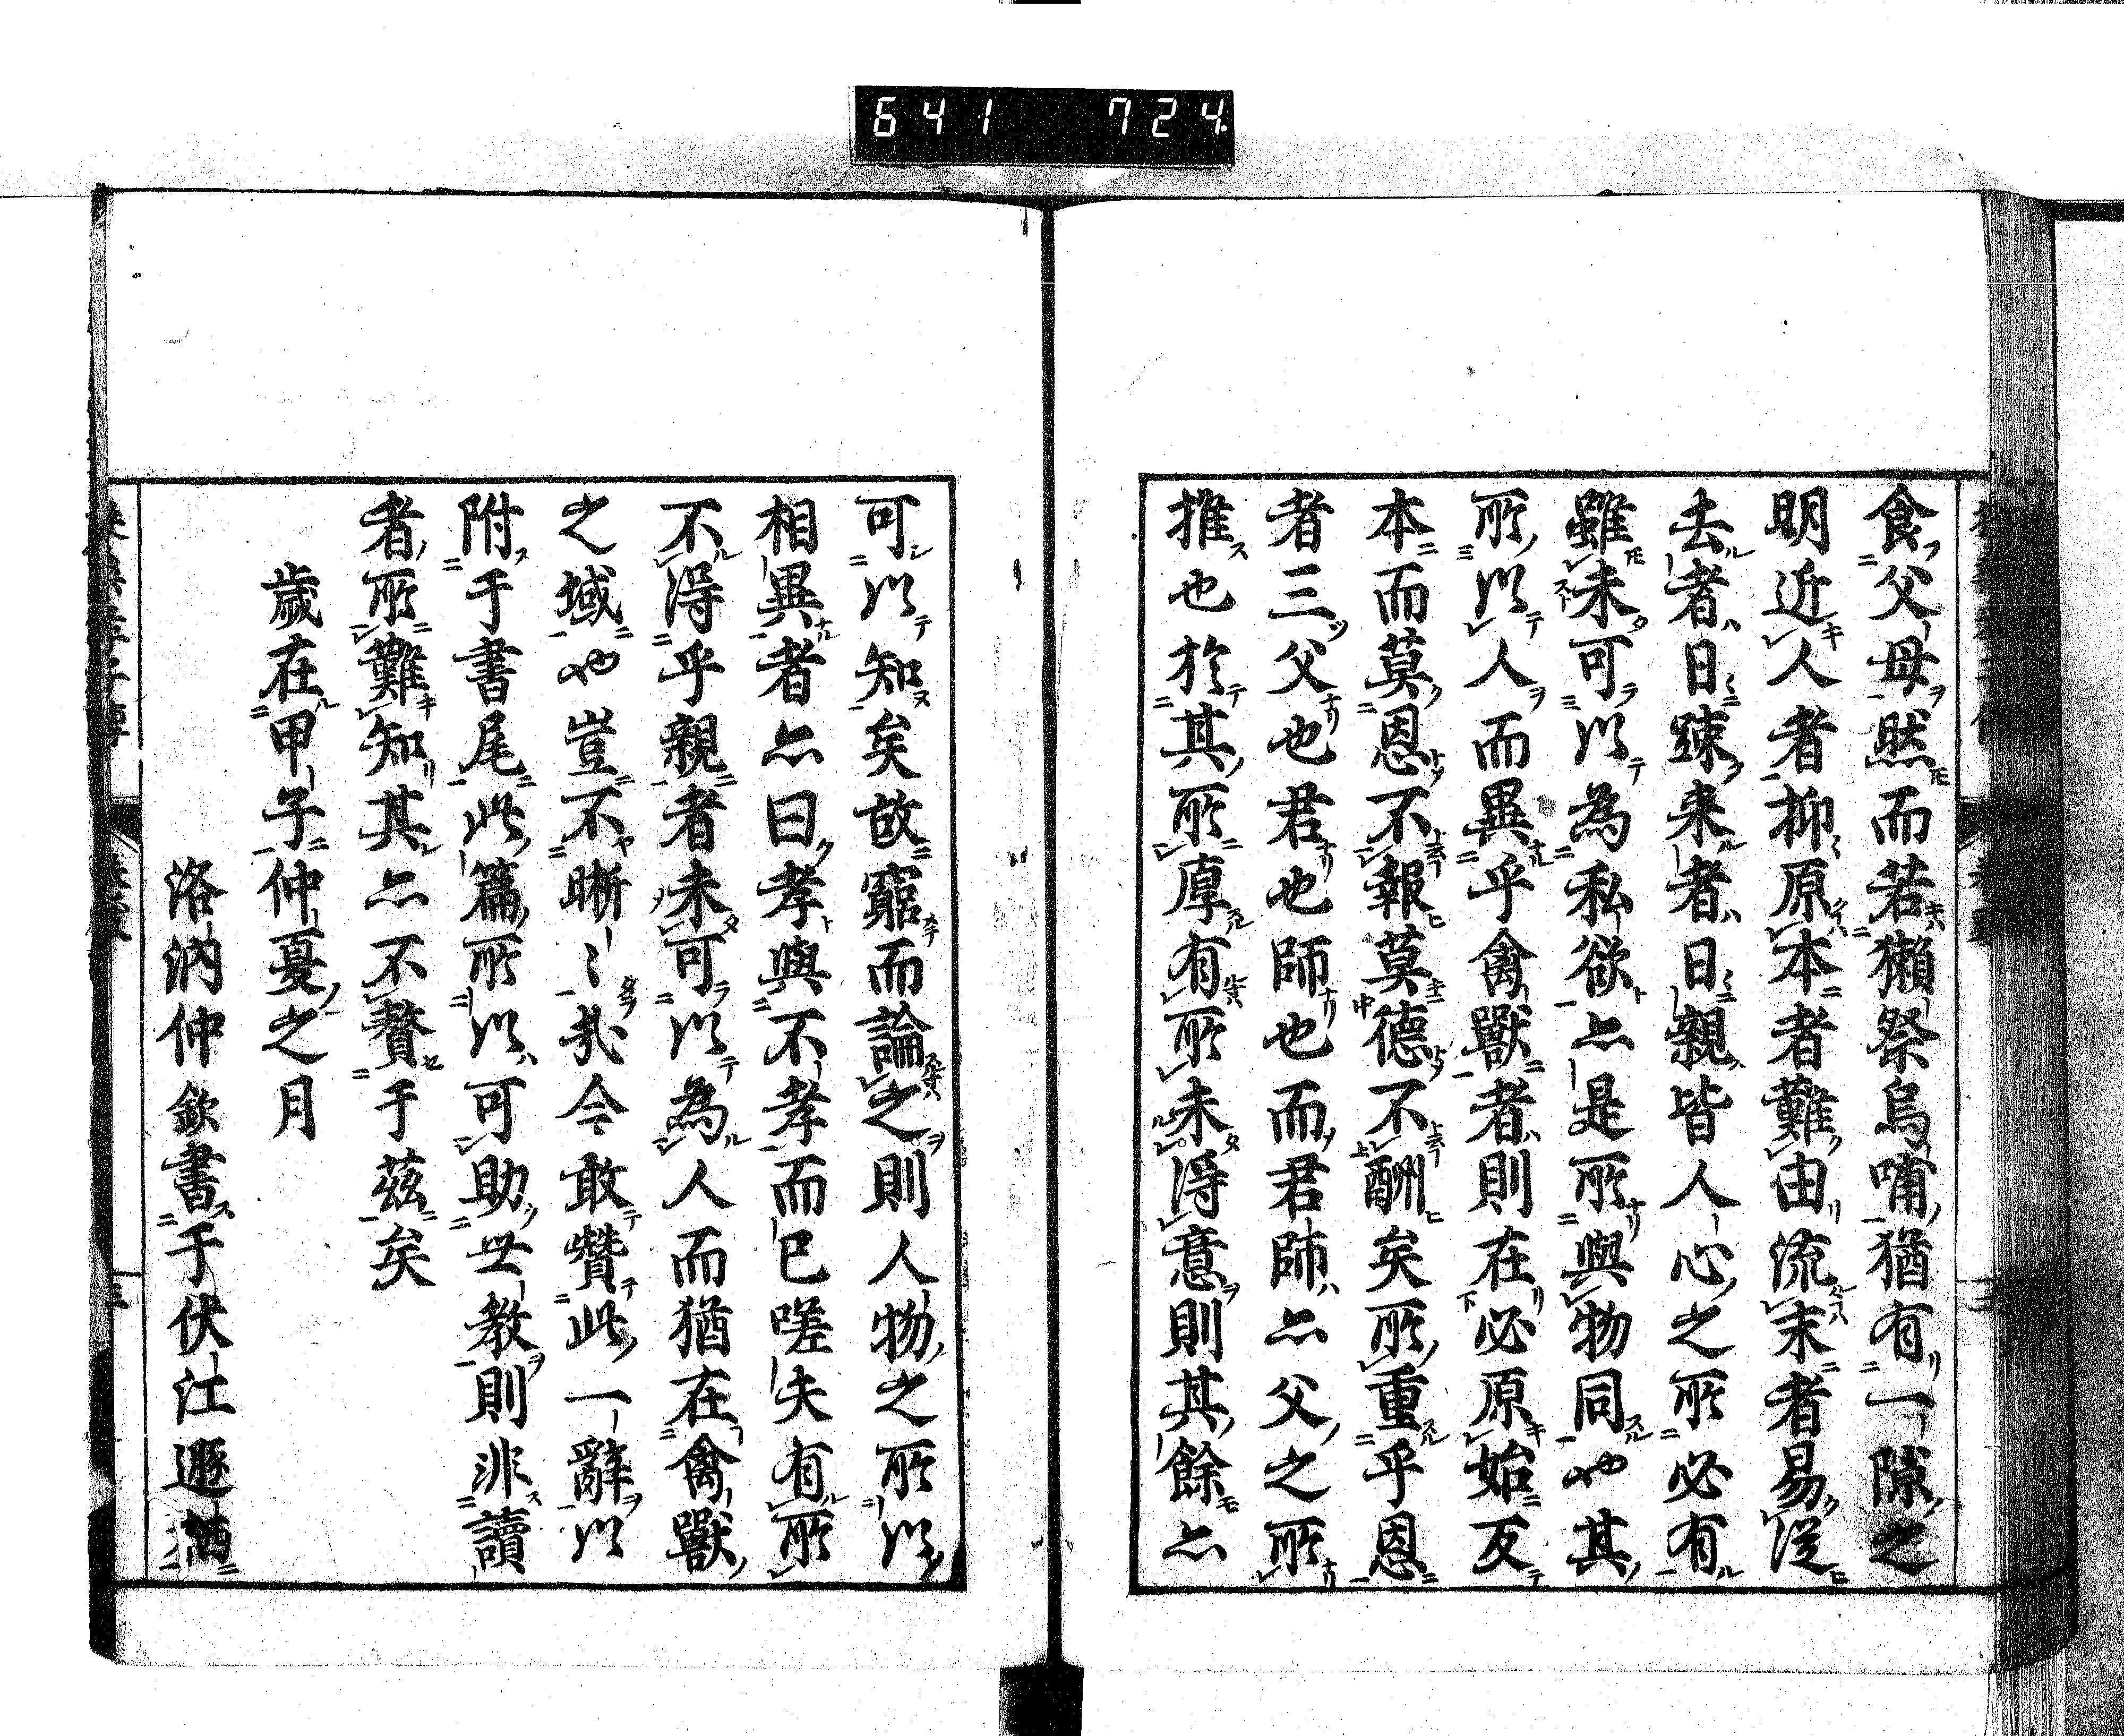 641 724
食父母然而若獺祭烏哺猶有一隙之
明近人者抑原本者難由流末者易從
去者日疎来者日親皆人心之所必有
雖未可以為私欲亦是所與物同也其
所以人而異乎禽獸者則在必原始反
本而莫恩不報莫德不酬矣所重乎恩
者三父也君也師也而君師亦父之所
推也於其所厚有所未得意則其餘亦
可以知矣故竆而論之則人物之所以
相異者亦曰孝與不孝而已嗟夫有所
不得乎親者未可以為人而猶在禽獸
之域也豈不晣〻哉今敢贊此一辭以
附于書尾此篇所以可助世教則非讀
者所難知其亦不贅于茲矣
歲在甲子仲夏之月
洛汭仲欽書于伏江遯